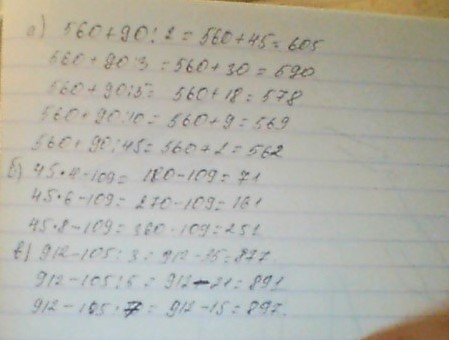 а) 560+90:2=560+45=605
560+90:3=560+30=590
560+90:5= 560+18=578
560+90:10=560+9=569
560+90:45=560+2=562
б) 45·4-109= 180-109=71
45·6-109=270-109=161
45·8-109=360-109=251
в) 912-105:3=912-35=877.
912-105:5=912-21=891
912-105:7=912-15=897.